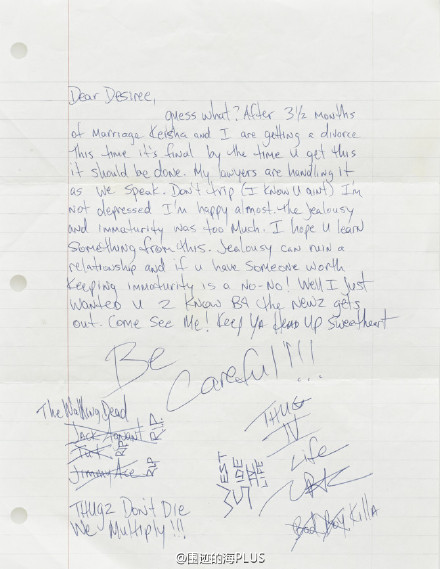 Dear Desiree,
guess what? After 3½ months
of Marriage Keisha and I are getting a divorce
This time it's final by the time u get this
it should be done. My lawyers are handling it
as we speak. Don't trip (I know U aint) I'm
not depressed I'm happy almost. The jealousy
and immaturity was too Much. I hope u learn
something from this. Jealousy can ruin a
relationship and if u have someone worth
keeping immaturity is a No-No! Well I Just
wanted u 2 know B4 the newz gets
out. Come See Me! Keep Ya Head Up Sweetheart
Be
Careful!!!
The Walking Dead
Jack R.I.P.
RIP
Jimmy Ace RIP
THUGZ Don't Die
We Multiply!!!
WEST
SIDE
LIFE
THUG
IV
Life
Bad Boy Killa
@围巡的海PLUS